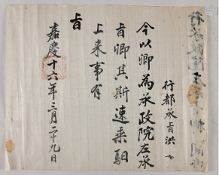 行都承旨洪
今以卿為承政院左承
旨卿其斯速乘馹
上來事有
旨
嘉慶十六年三月二十九日